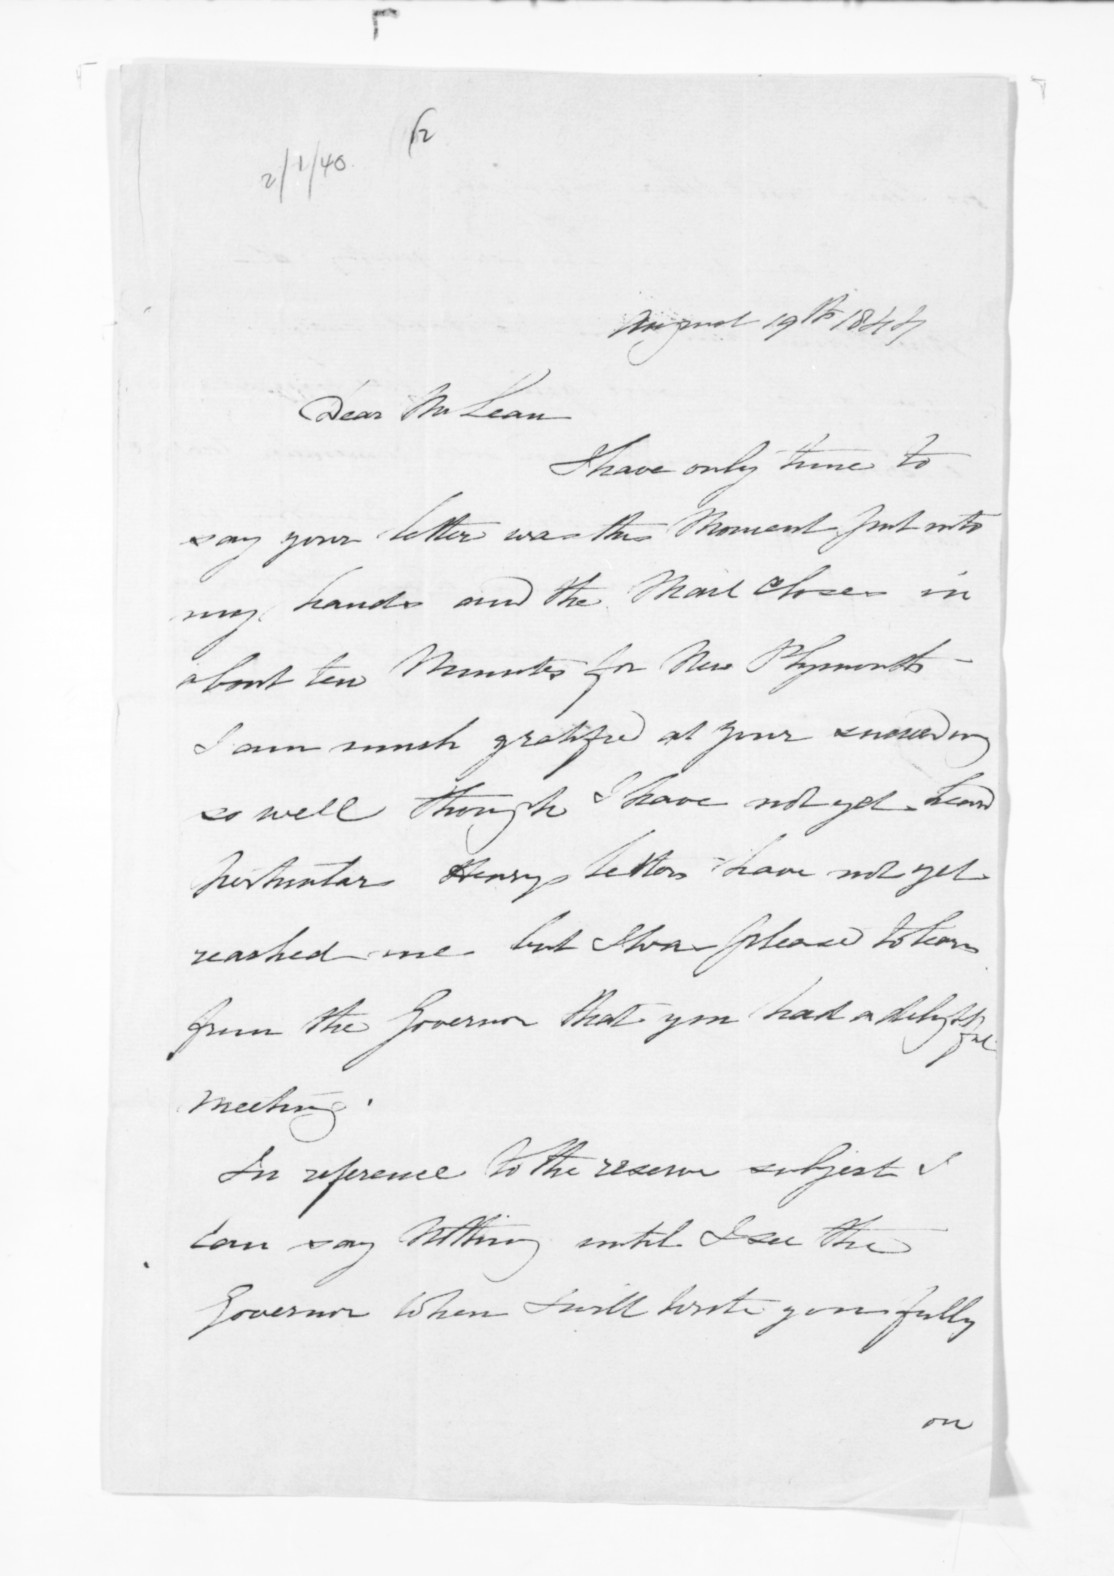 2/1/40
62
August 19th 1844
Dear Mr Lean
I have only time to
say your letter was this Moment put into
my hands and the Mail closes in
about ten Minutes for New Plymouth -
I am much gratified at your succeeding
so well though I have not yet heard
particulars Henrys letters have not yet
reached me but I was pleased to hear
from the Governor that you had a delightful
Meeting.
In reference to the reserve subject I
can say Nothing until I see the
Governor when I will write you fully
on